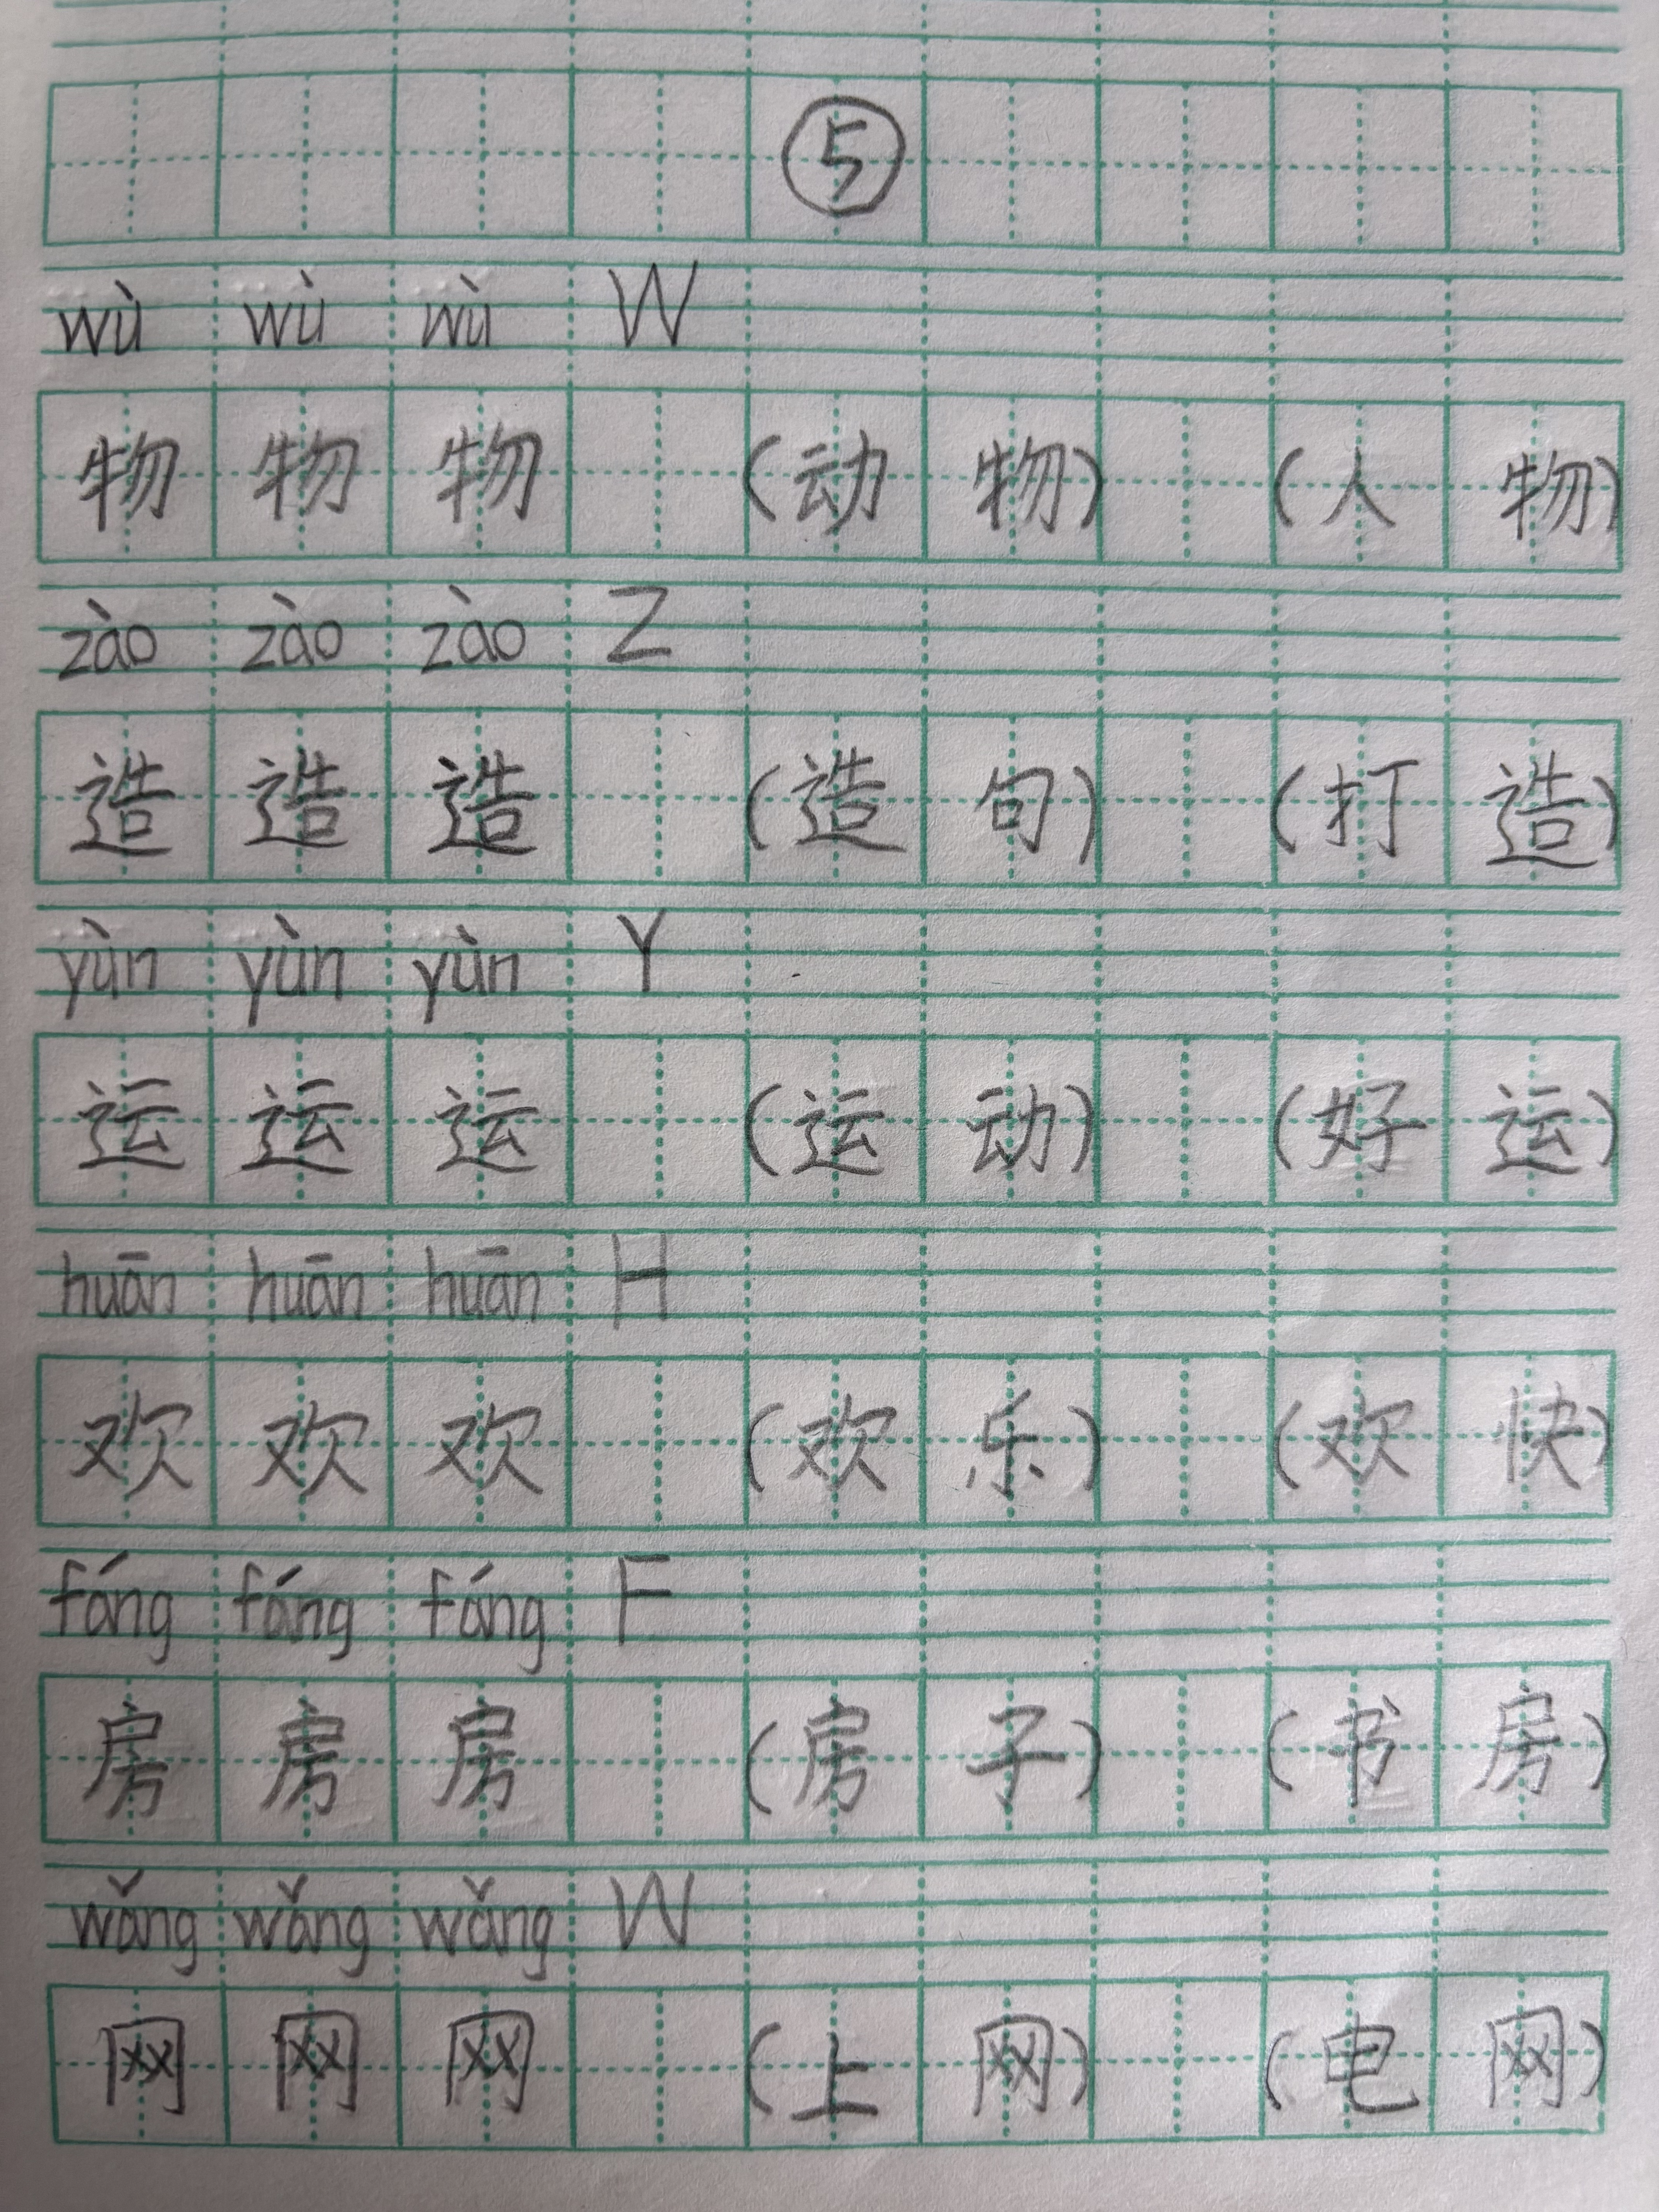 ⑤
wù wù wù W
物 物 物 (动 物) (人 物)
zào zào zào Z
造 造 造 (造 句) (打 造)
yùn yùn yùn Y
运 运 运 (运 动) (好 运)
huān huān huān H
欢 欢 欢 (欢 乐) (欢 快)
fáng fáng fáng F
房 房 房 (房 子) (书 房)
wǎng wǎng wǎng W
网 网 网 (上 网) (电 网)